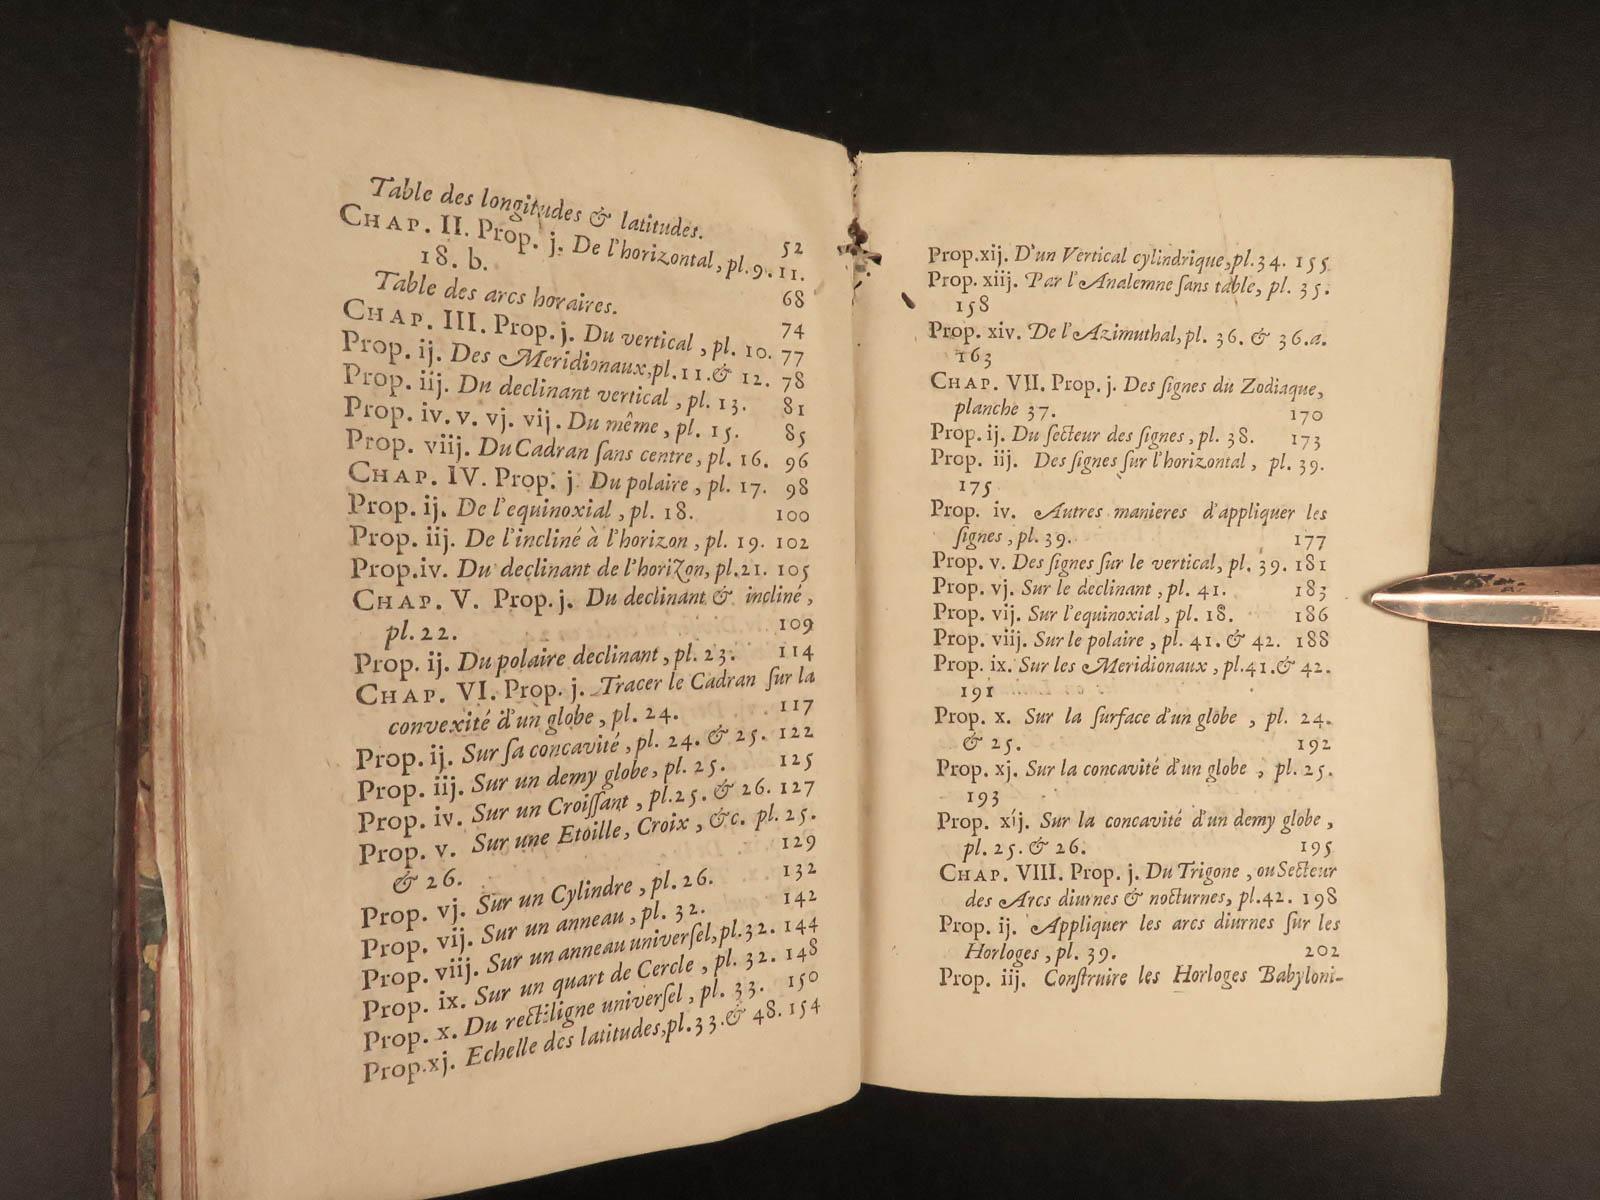 Table des longitudes & latitudes. 52
CHAP. II. Prop. j. De l'horizontal, pl. 9. 11.
18. b. 68
Table des arcs horaires. 74
CHAP. III. Prop. j. Du vertical, pl. 10. 77
Prop. ij. Des Meridionaux, pl. 11. & 12. 78
Prop. iij. Du declinant vertical, pl. 13. 81
Prop. iv. v. vj. vij. Du même, pl. 15. 85
Prop. viij. Du Cadran sans centre, pl. 16. 96
CHAP. IV. Prop. j. Du polaire, pl. 17. 98
Prop. ij. De l'equinoxial, pl. 18. 100
Prop. iij. De l'incliné à l'horizon, pl. 19. 102
Prop. iv. Du declinant de l'horizon, pl. 21. 105
CHAP. V. Prop. j. Du declinant & incliné,
pl. 22. 109
Prop. ij. Du polaire declinant, pl. 23. 114
CHAP. VI. Prop. j. Tracer le Cadran sur la
convexité d'un globe, pl. 24. 117
Prop. ij. Sur sa concavité, pl. 24. & 25. 122
Prop. iij. Sur un demy globe, pl. 25. 125
Prop. iv. Sur un Croissant, pl. 25. & 26. 127
Prop. v. Sur une Etoille, Croix, &c. pl. 25.
& 26. 129
Prop. vj. Sur un Cylindre, pl. 26. 132
Prop. vij. Sur un anneau, pl. 32. 142
Prop. viij. Sur un anneau universel, pl. 32. 144
Prop. ix. Sur un quart de Cercle, pl. 32. 148
Prop. x. Du rectiligne universel, pl. 33. 150
Prop. xj. Echelle des latitudes, pl. 33. & 48. 154
Prop. xij. D'un Vertical cylindrique, pl. 34. 155
Prop. xiij. Par l'Analemne sans table, pl. 35.
158
Prop. xiv. De l'Azimuthal, pl. 36. & 36. a.
163
CHAP. VII. Prop. j. Des signes du Zodiaque,
planche 37. 170
Prop. ij. Du secteur des signes, pl. 38. 173
Prop. iij. Des signes sur l'horizontal, pl. 39.
175
Prop. iv. Autres manieres d'appliquer les
signes, pl. 39. 177
Prop. v. Des signes sur le vertical, pl. 39. 181
Prop. vj. Sur le declinant, pl. 41. 183
Prop. vij. Sur l'equinoxial, pl. 18. 186
Prop. viij. Sur le polaire, pl. 41. & 42. 188
Prop. ix. Sur les Meridionaux, pl. 41. & 42.
191
Prop. x. Sur la surface d'un globe, pl. 24.
& 25. 192
Prop. xj. Sur la concavité d'un globe, pl. 25.
193
Prop. xij. Sur la concavité d'un demy globe,
pl. 25. & 26. 195
CHAP. VIII. Prop. j. Du Trigone, ou Secteur
des Arcs diurnes & nocturnes, pl. 42. 198
Prop. ij. Appliquer les arcs diurnes sur les
Horloges, pl. 39. 202
Prop. iij. Construire les Horloges Babyloni-